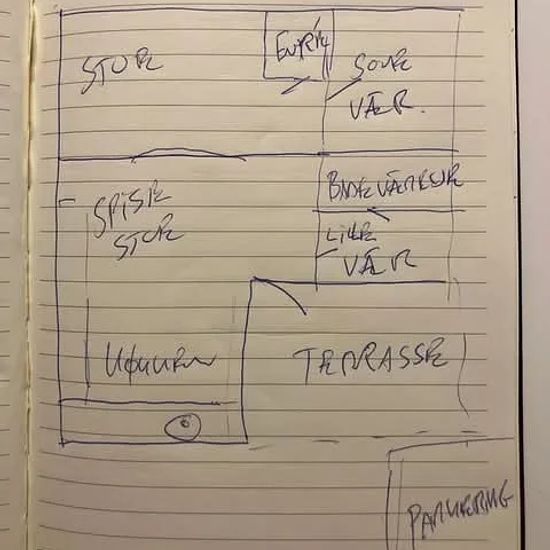 STUE
Entré
SOVE
VÆR.
SPISE
STUE
BADEVÆRELSE
LILLE
VÆR
TERRASSE
PARKERING